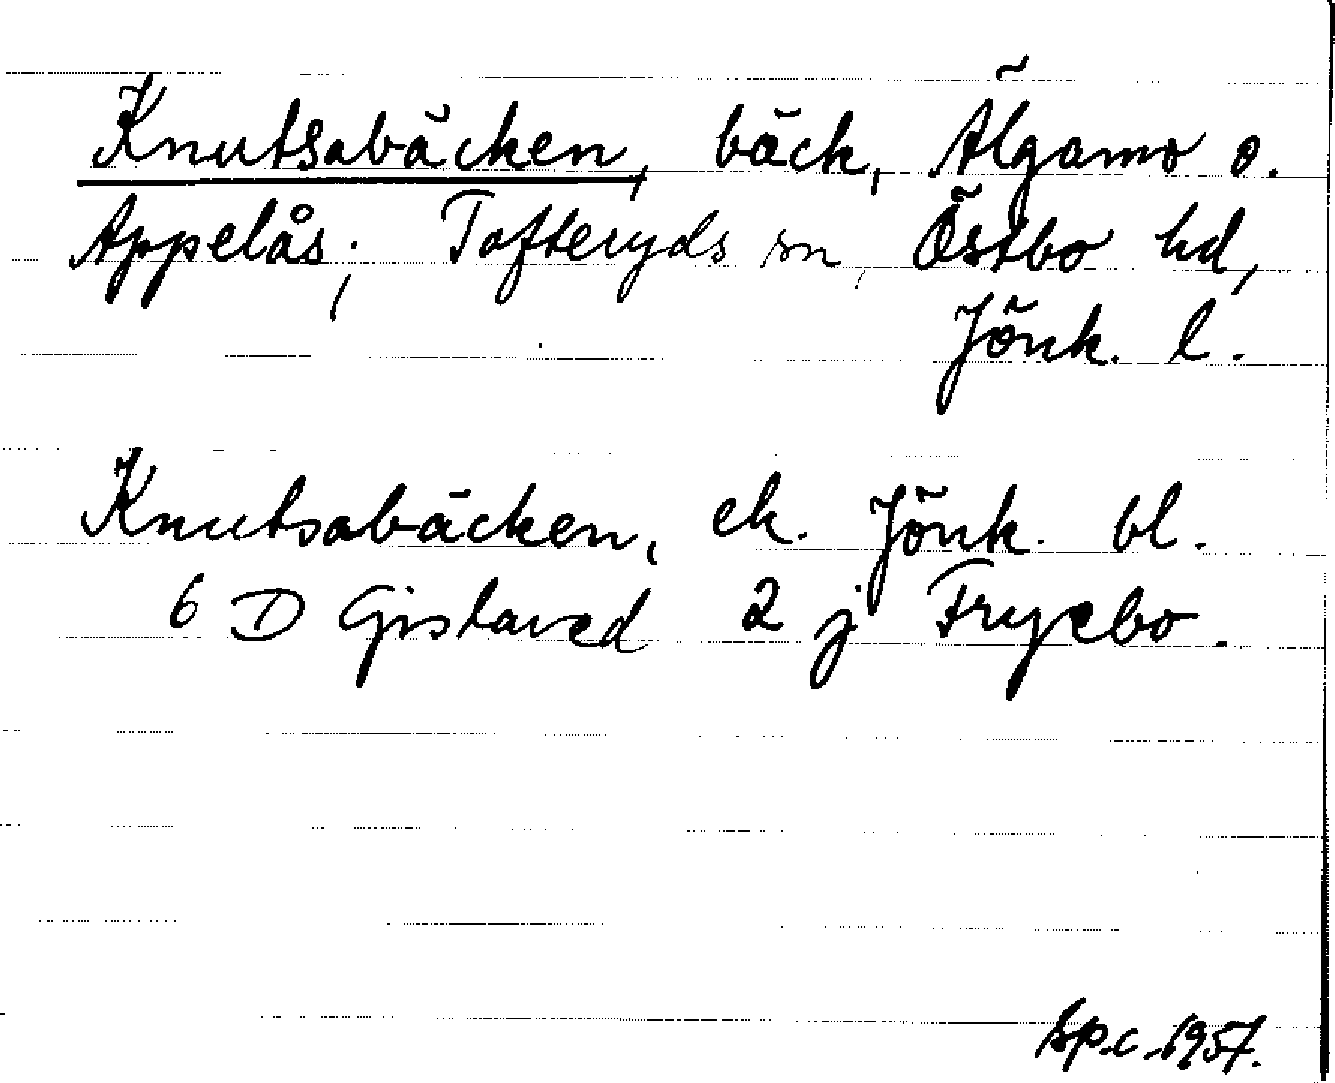 Knutsabäcken, bäck, Älgamo o.
Appelås; Tofteryds sn, Östbo hd,
Jönk. l.
Knutsabäcken, ek. Jönk. bl.
6 D Gislaved 2 j Fryebo.
sp.c. 1957.